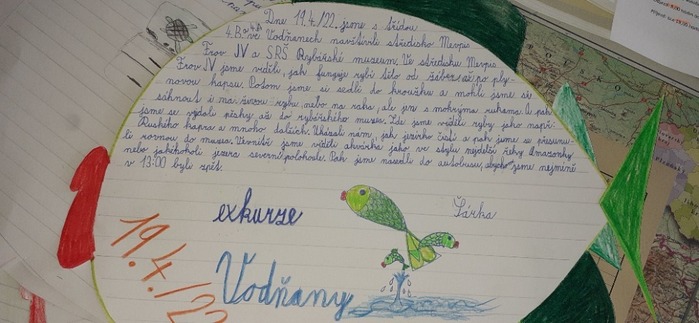 Dne 19.4./22. jsme s třídou
4.B. ve Vodňanech navštívili středisko Mevpis
Frov JV a SRŠ Rybářské muzeum. Ve středisku Mevpis
Frov JV jsme viděli, jak funguje rybí tělo od žáber, až po ply-
novou kapsu. Potom jsme si sedli do kroužku a mohli jsme si
sáhnout i na živou rybu, nebo na raka, ale jen s mokrýma rukama. A pak
jsme se vydali pěšky až do rybářského muzea. Zde jsme viděli ryby jako např:
Ruského kapra a mnoho dalších. Ukázali nám, jak jeseter čistí a pak jsme se přesunu-
li rovnou do muzea. Uvnitř jsme viděli akvárka jako ve stylu nejdelší řeky Amazonky
nebo jakéhokoli jezera severní polokoule. Pak jsme nasedli do autobusu, abychom jsme nejméně
v 13:00 byli zpět.
exkurze
Šárka
19.4./22
Vodňany